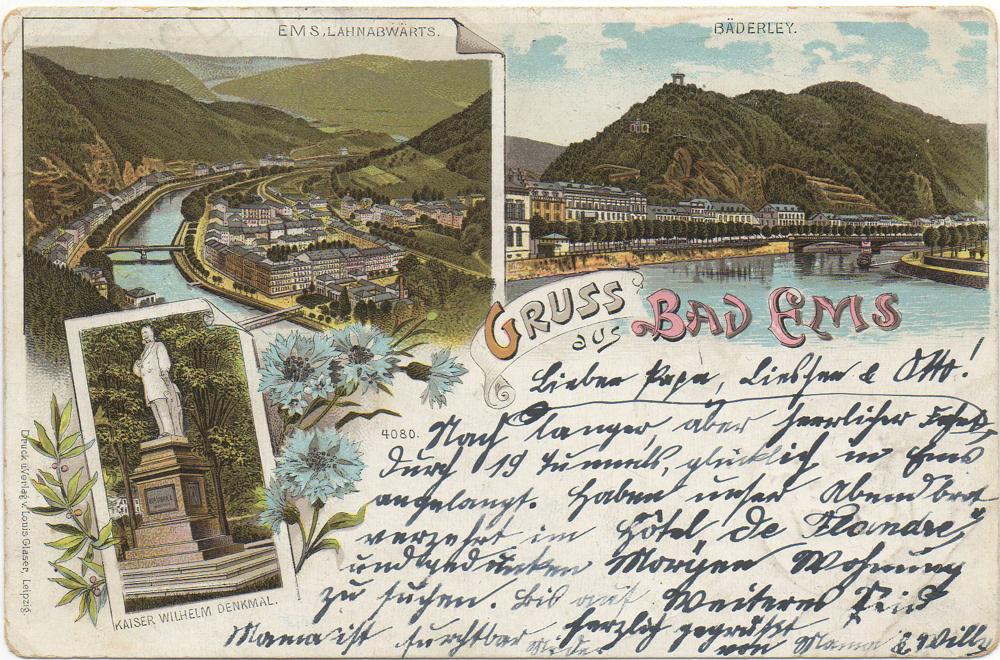 EMS, LAHNABWÄRTS.
BÄDERLEY.
GRUSS
aus
BAD EMS
Lieber Papa, Lieschen & Otto!
4080.
Nach langer, aber herrlicher
durch 19 Tunnels, glücklich in Ems
angelangt. Haben unser Abendbrot
verzehrt im Hôtel de Flandre"
und gedenken Morgen Wohnung
zu suchen. Bis auf Weiteres seid
herzlich gegrüßt
von Mama & Willy
Mama ist furchtbar
KAISER WILHELM DENKMAL.
Druck u Verlag v. Louis Glaser, Leipzig.